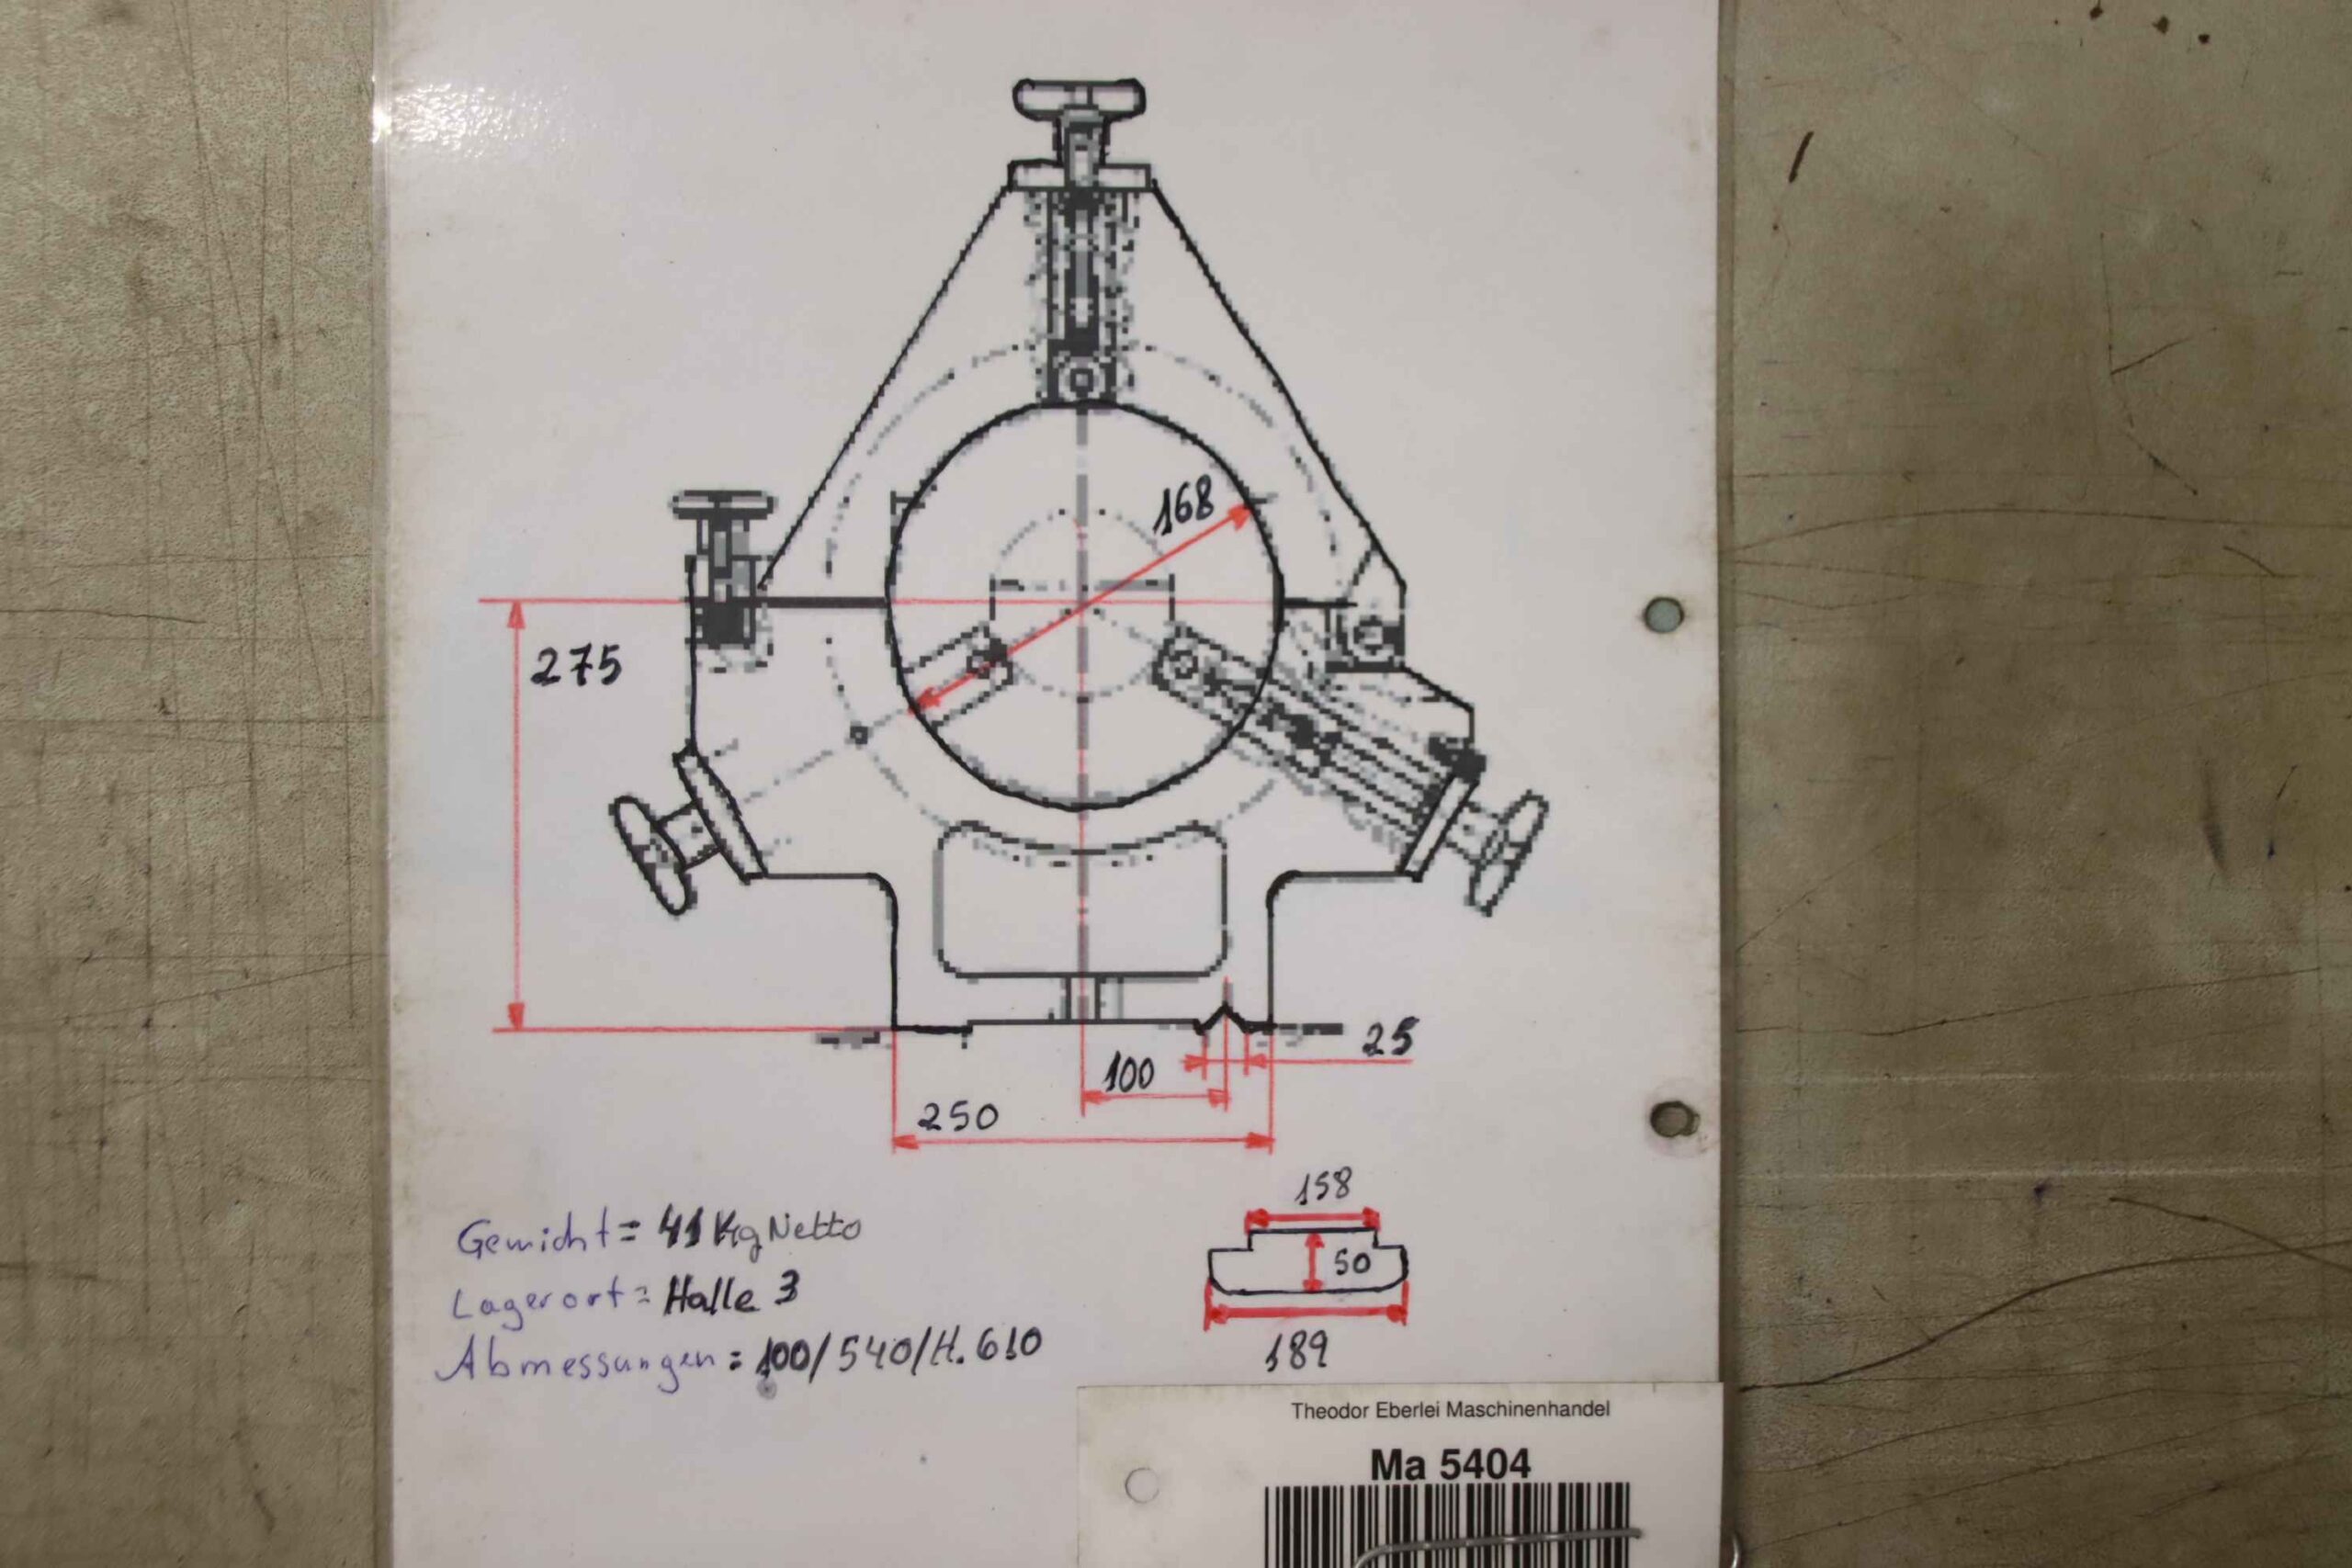 168
275
25
100
250
158
50
189
Gewicht = 41 Kg Netto
Lagerort = Halle 3
Abmessungen = 100/540/H.610
Theodor Eberlei Maschinenhandel
Ma 5404